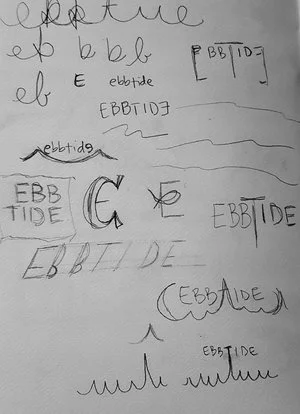 ebbtide
eb b b b
[EBBTIDE]
eb E ebbtide
EBBTIDE
ebbtide
EBB
TIDE
E E
EBBTIDE
EBBTIDE
EBBTIDE
EBBTIDE